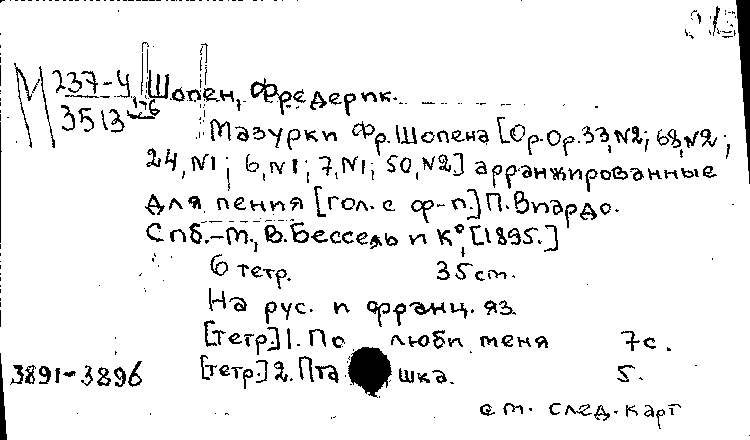 М 237-4
3513 1-6
Шопен, Фредерик.
Мазурки Фр. Шопена [Op. Op. 33, N2; 68, N2;
24, N1; 6, N1; 7, N1; 50, N2] арранжированные
для пения [гол. с ф-п.] П. Виардо.
Спб.-М., В. Бессель и К°, [1895.]
6 тетр. 35 см.
На рус. и франц. яз.
[тетр.] 1. По люби меня 7 с.
3891-3896 [тетр.] 2. Пта шка. 5.
см. след. карт